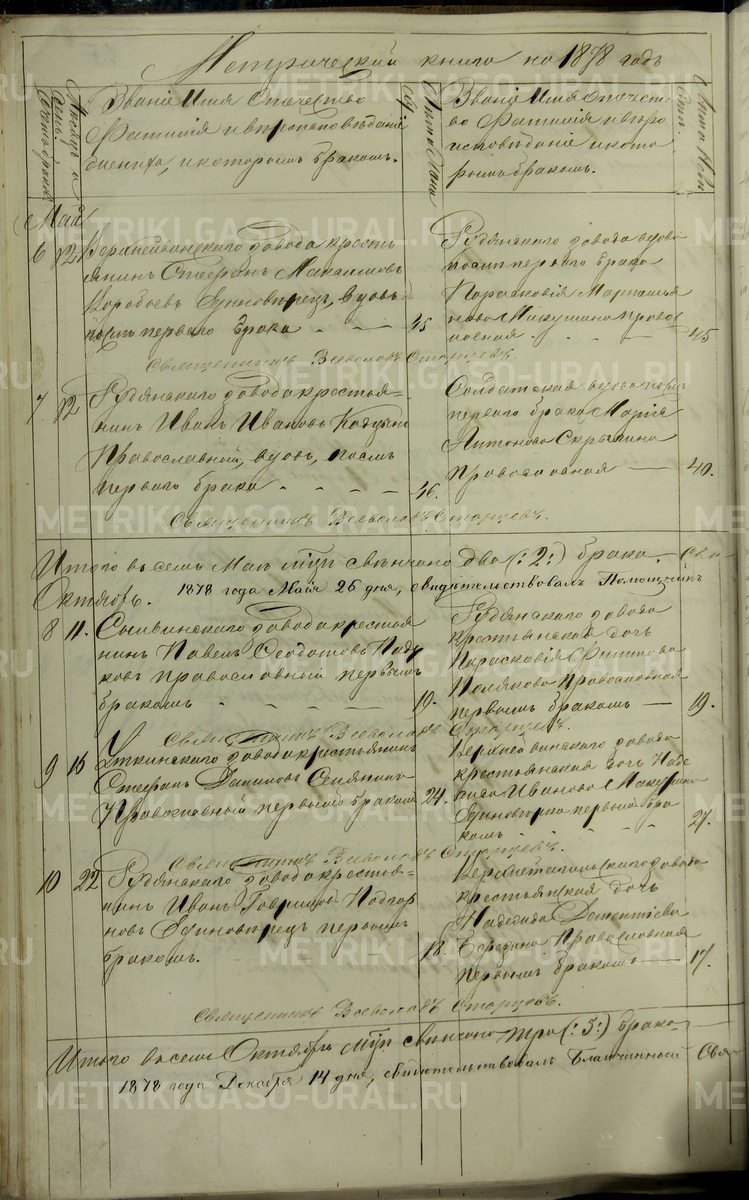 Метрической книги на 1878 годъ
Званіе Имя Отчество
Фамилія и вѣроисповѣданіе
жениха, и которымъ бракомъ.
Званіе Имя Отчест-
во Фамилія и вѣро
исповѣданіе и кото
рымъ бракомъ.
Май
6 12 Верхнейвинскаго завода кресть
янинъ Стефанъ Максимовъ
Воробьевъ Единовѣрецъ, вдовъ
послѣ перваго брака 45
Рудянскаго завода вдова
послѣ перваго брака
Парасковія
Микушина Право
славная 45
Священникъ Всеволодъ Старцевъ.
7 12 Рудянскаго завода крестья-
нинъ Иванъ Ивановъ
Православный, вдовъ, послѣ
перваго брака 46.
Солдатская вдова послѣ
перваго брака Марія
Антонова Скрыпина
Православная 40.
Священникъ Всеволодъ Старцевъ.
Итого въ семъ Маѣ м-цѣ свѣнчано два (:2:) брака. Свя
1878 года Мая 26 дня, свидѣтельствовалъ Помощникъ
Октябрь.
8 11. Сылвинскаго завода крестья
нинъ Павелъ Ѳеодотовъ
православный первымъ
бракомъ 19.
Рудянскаго завода
крестьянская дочь
Парасковія Филипова
Полякова Православная
первымъ бракомъ 19.
Священникъ Всеволодъ Старцевъ.
9 15 Уткинскаго завода крестьянинъ
Стефанъ Даниловъ Сенянинъ
Православный первымъ бракомъ 24.
Верхнейвинскаго завода
крестьянская дочь Наде
жда Иванова
Единовѣрка первымъ бра
комъ 27.
Священникъ Всеволодъ Старцевъ.
10 22 Рудянскаго завода крестья-
нинъ Иванъ Гавриловъ Подгор
новъ Единовѣрецъ первымъ
бракомъ. 18.
Верхнетагильскаго завода
крестьянская дочь
Надежда Дементіева
Середкина Православная
первымъ бракомъ 17.
Священникъ Всеволодъ Старцевъ.
Итого въ семъ Октябрѣ м-цѣ свѣнчано три (:3:) брака Свя
1878 года Декабря 14 дня, свидѣтельствовалъ Благочинный
METRIKI.GASO-URAL.RU